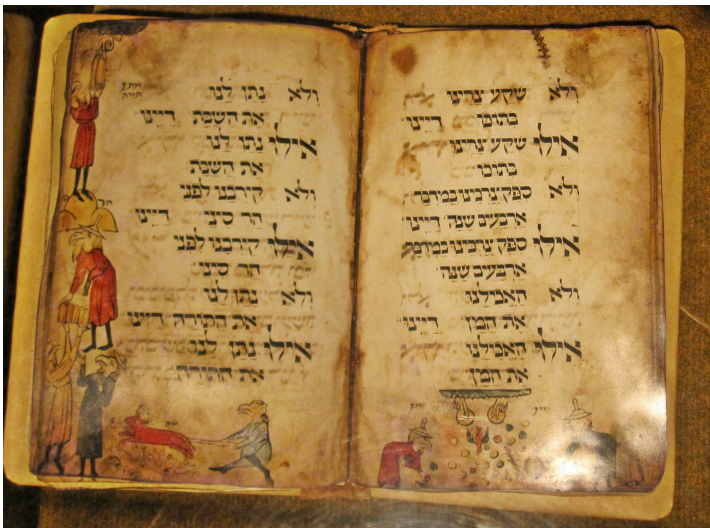 ולא שקע צרינו
בתוכו דיינו
אילו שקע צרינו
בתוכו
ולא ספק צרכינו במדבר
ארבעים שנה דיינו
אילו ספק צרכינו במדבר
ארבעים שנה
ולא האכילנו
את המן דיינו
אילו האכילנו
את המן
ולא נתן לנו
את השבת דיינו
אילו נתן לנו
את השבת
ולא קירבנו לפני
הר סיני דיינו
אילו קירבנו לפני
הר סיני
ולא נתן לנו
את התורה דיינו
אילו נתן לנו
את התורה
מתן
תורה